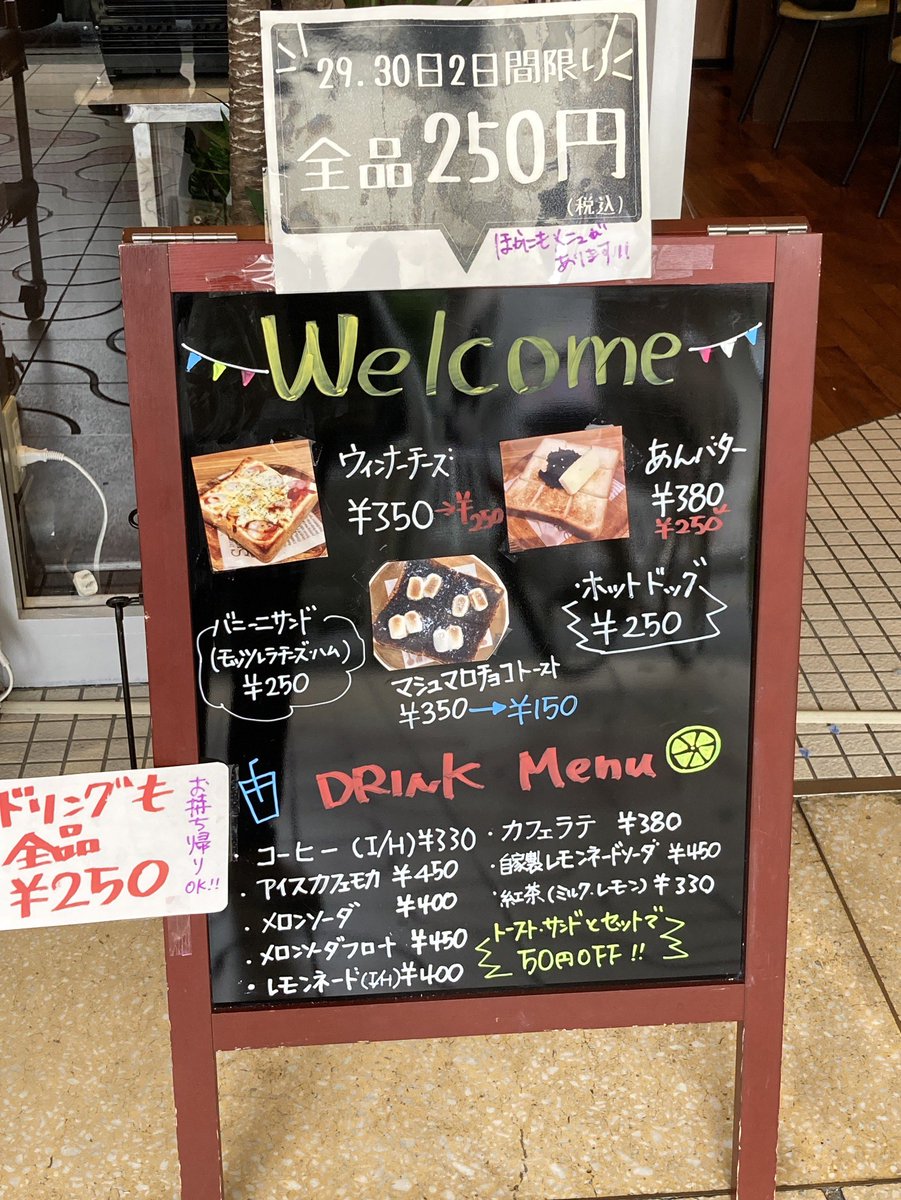 29.30日2日間限り
全品250円
(税込)
ほかにもメニューが
あります!!!
Welcome
ウィンナーチーズ
¥350→¥250
あんバター
¥380
¥250
・ホットドッグ
¥250
パニーニサンド
(モッツレラチーズ・ハム)
¥250
マシュマロチョコトースト
¥350→¥150
DRINK Menu
・コーヒー(I/H)¥330
・アイスカフェモカ ¥450
・メロンソーダ ¥400
・メロンソーダフロート ¥450
・レモンネード(I/H)¥400
・カフェラテ ¥380
・自家製レモンネードソーダ ¥450
・紅茶(ミルク・レモン)¥330
トースト・サンドとセットで
50円OFF!!
ドリングも
全品
¥250
お持ち帰り
OK!!